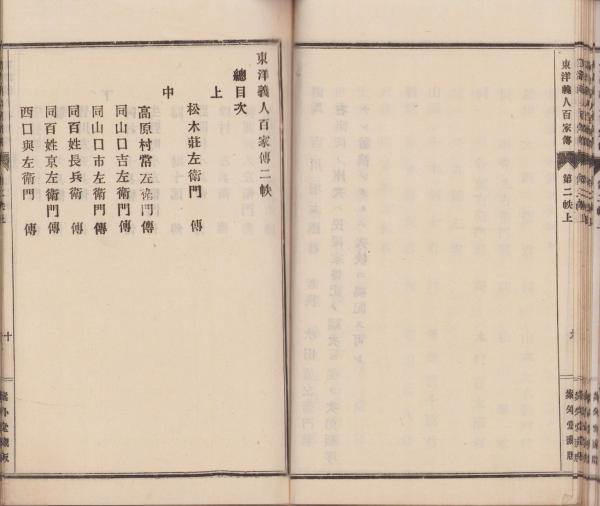 東洋義人百家傳 第二帙上
東洋義人百家傳二帙
總目次
上
松木莊左衛門 傳
中
高原村常左衛門傳
同山口吉左衛門傳
同山口市左衛門傳
同百姓長兵衛 傳
同百姓京左衛門傳
西口與左衛門 傳
十